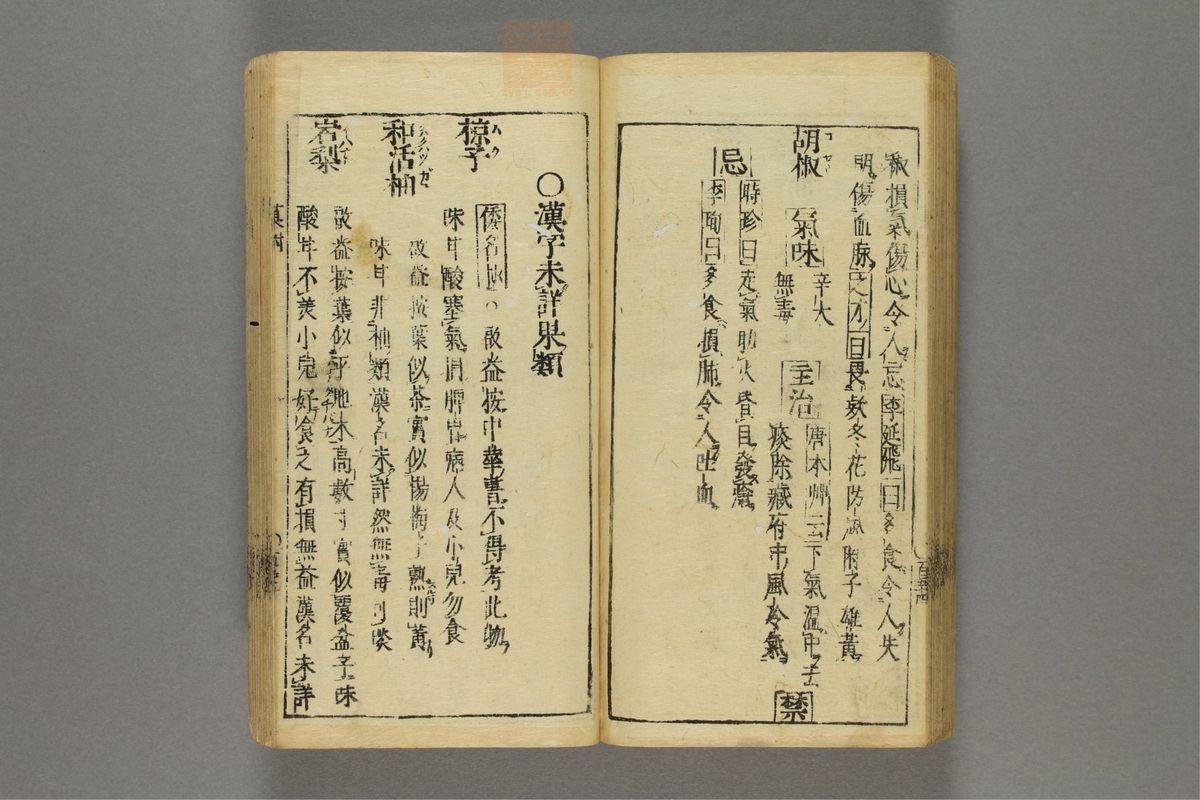 椒損氣傷心令人忘李延飛曰多食令人失
明傷血脉之才曰畏款冬花防風附子雄黃
胡椒 氣味 辛大無毒 主治 唐本艸云下氣温中去
痰除臟府中風冷氣 禁
忌 時珍曰走氣助火昏目發瘡
李珣曰多食損肺令人吐血
〇漢字未詳果類
椋子 倭名 啟益按中華書不得考此物
味甘酸塞氣 脾胃 人及小兒勿食
和活柚 啟益按葉似茶實似楊梅子熟則黃
味甘非柚類漢名未詳然無毒可啖
岩梨 啟益按葉似 地木高數寸實似覆盆子味
酸甘不美小兒好食之有損無益漢名未詳